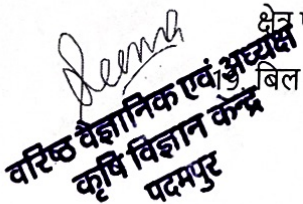 क्षेत्र
19 बिल
वरिष्ठ वैज्ञानिक एवं अध्यक्ष
कृषि विज्ञान केन्द्र
पदमपुर